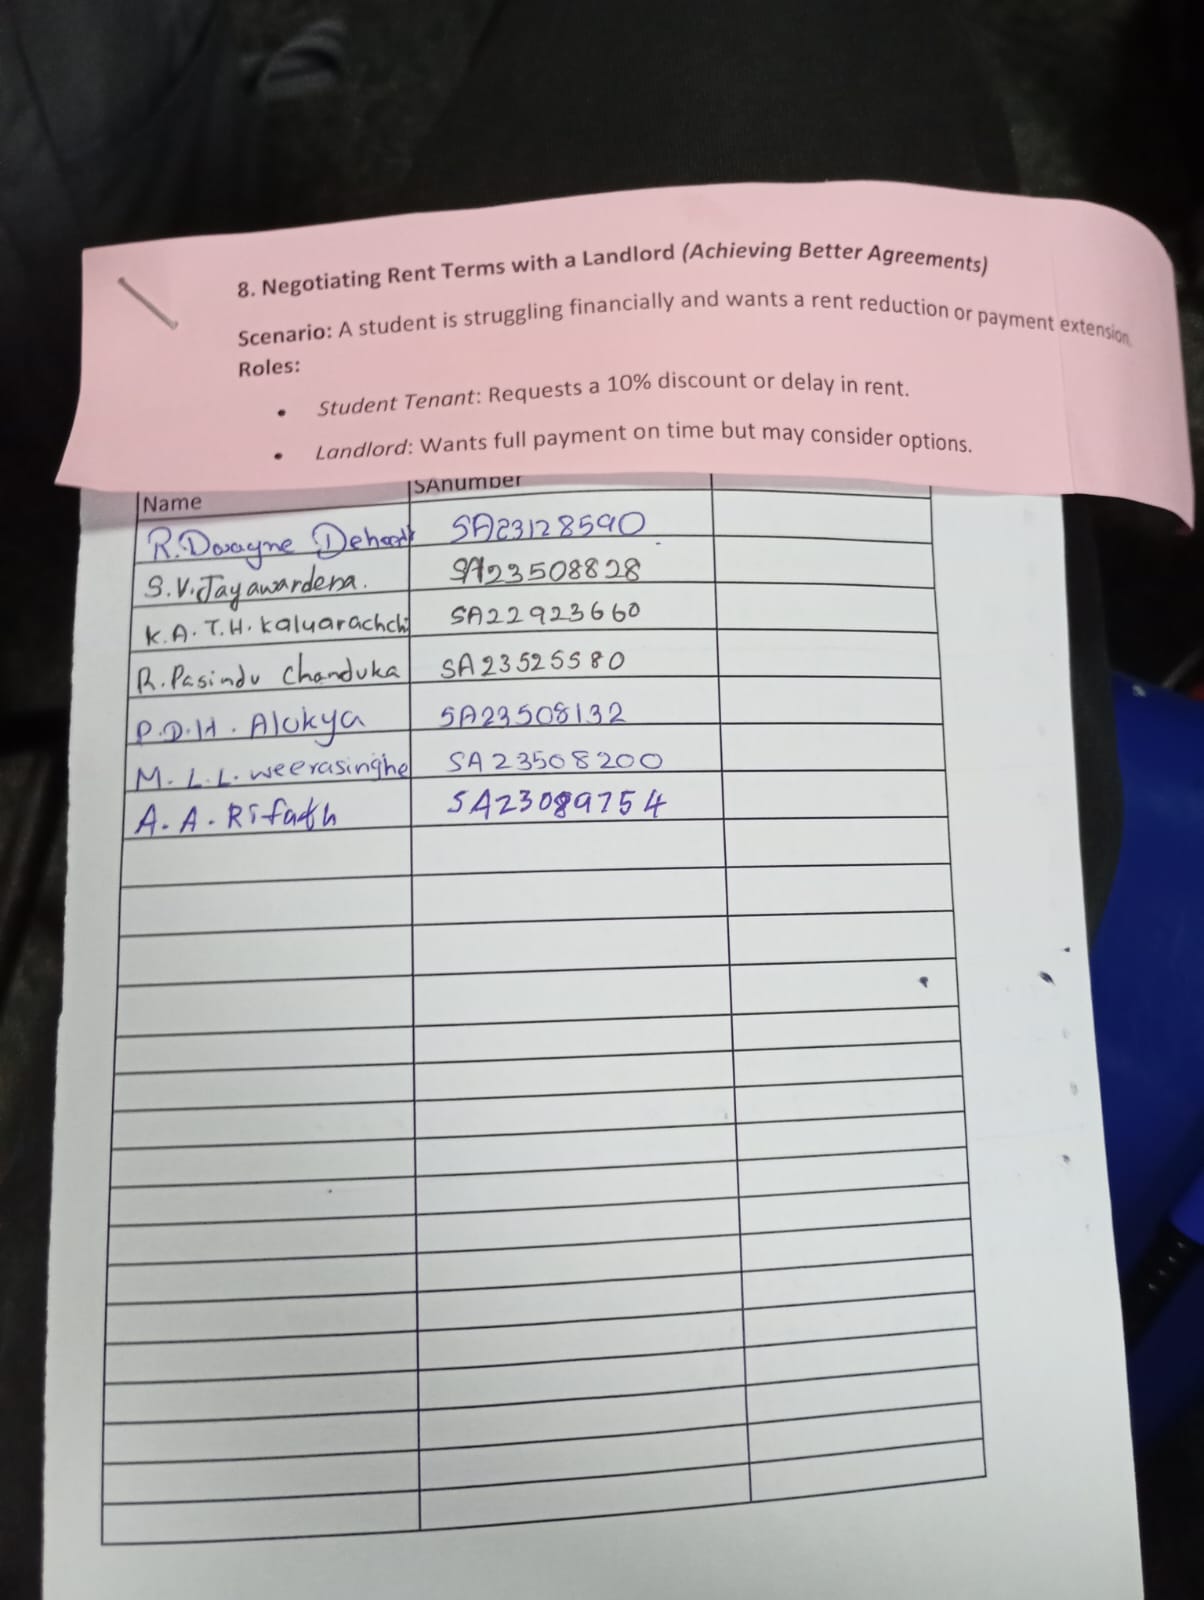 8. Negotiating Rent Terms with a Landlord (Achieving Better Agreements)
Scenario: A student is struggling financially and wants a rent reduction or payment extension.
Roles:
• Student Tenant: Requests a 10% discount or delay in rent.
• Landlord: Wants full payment on time but may consider options.
Name SAnumber
R. Dwayne SA23128590
S.V. Jayawardena. SA23508828
K.A.T.H. Kaluarachchi SA22923660
R. Pasindu Chanduka SA23525580
P.D.H. Alokya SA23508132
M.L.L. weerasinghe SA23508200
A.A. Rifadh SA23089754